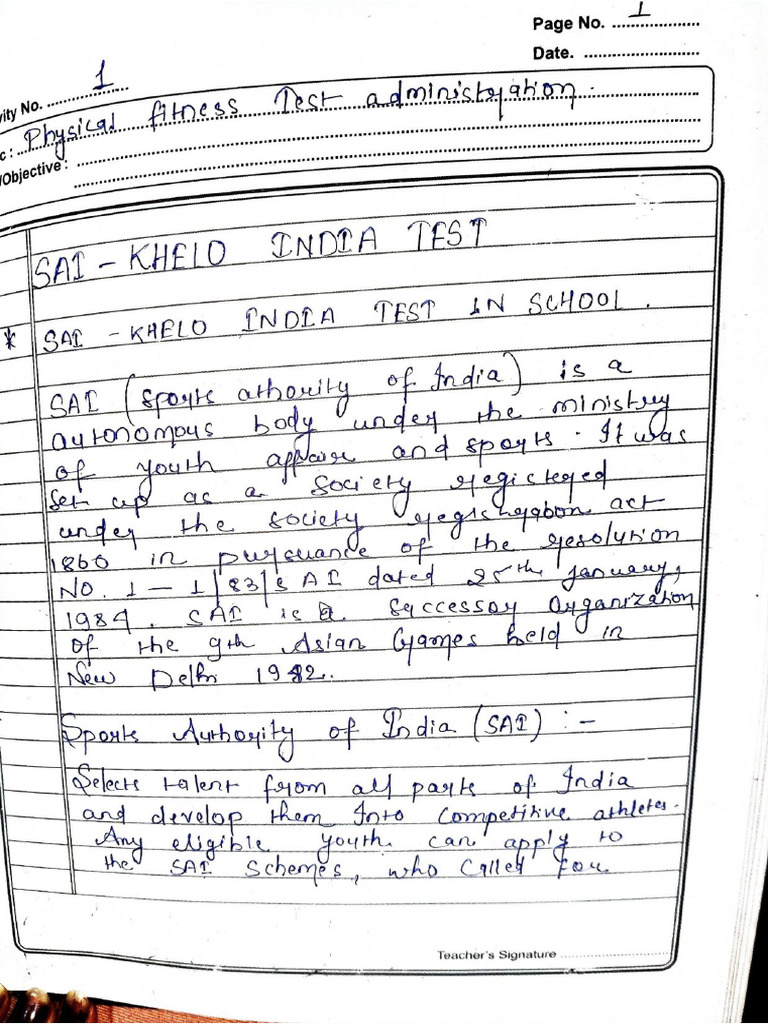 Page No. 1
Date.
vity No. 1
c: Physical fitness Test administration.
/Objective :
SAI - KHELO INDIA TEST
* SAI - KHELO INDIA TEST IN SCHOOL.
SAI (sports athority of India) is a
autonomous body under the ministry
of youth affair and sports. It was
set up as a society registered
under the society registration act
1860 in pursuance of the resolution
NO. 1-1/83/SAI dated 25th january,
1984. SAI is a successor organization
of the 9th Asian Games held in
New Delhi 1982.
Sports Authority of India (SAI) :-
Selects talent from all parts of India
and develop them Into competitive athletes.
Any eligible youth can apply to
the SAI Schemes, who called for
Teacher's Signature